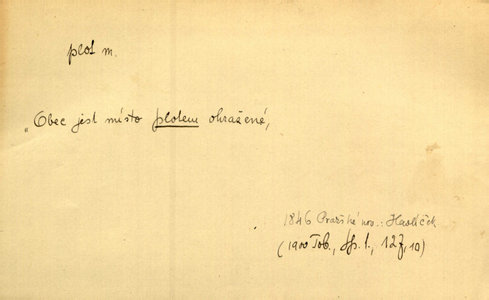 plot m.
„Obec jest místo plotem ohražené,
1846 Pražské nov.: Havlíček
(1900 Tob., Sp. 1., 127, 10)